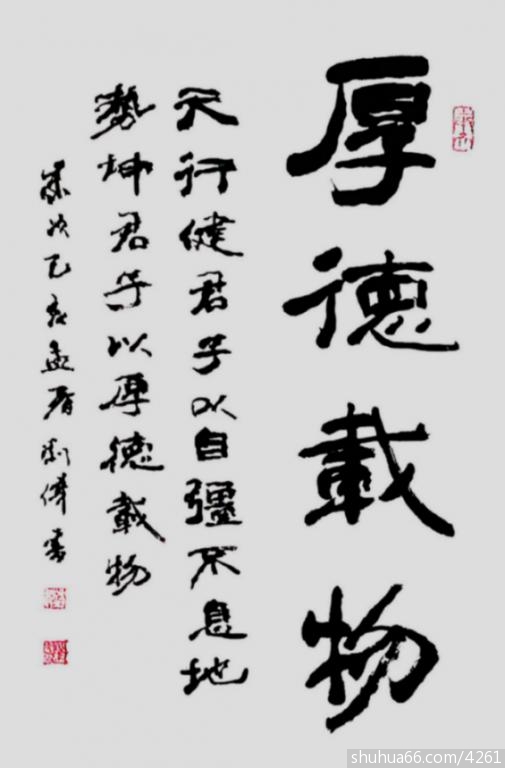 厚德載物
天行健君子以自彊不息地
勢坤君子以厚德載物
歲次己亥孟春劉偉書
shuhua66.com/4261